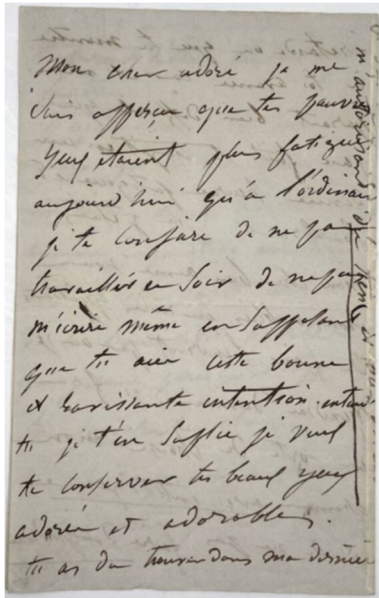 Mon cher adoré je me
suis apperçu que tes pauvre
yeux étaient plus fatigué
aujourd'hui qu'à l'ordinair
je te conjure de ne pa
travailler ce soir de ne pa
m'écrire même en supposant
que tu aies cette bonne
et ravissante intention. entend
tu je t'en supplie je veux
te conserver tes beaux yeux
adorés et adorables.
tu as du trouver dans ma dernièr